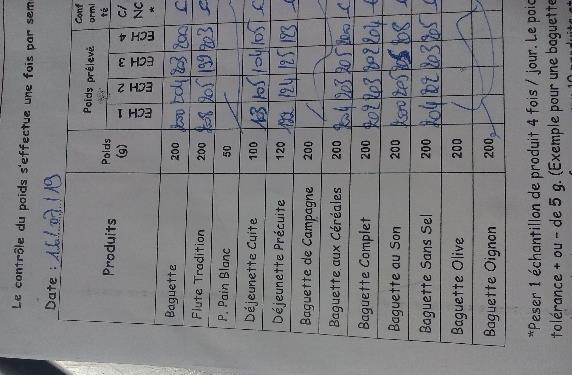 Le contrôle du poids s'effectue une fois par sem
Date : 16/07/19
Produits Poids (g) Poids prélevé Conf ormi té
ECH 1 ECH 2 ECH 3 ECH 4 C/ NC *
Baguette 200 200 201 203 200 C
Flute Tradition 200 203 205 199 203 C
P. Pain Blanc 50
Déjeunette Cuite 100 103 105 104 105 C
Déjeunette Précuite 120 122 124 125 123 C
Baguette de Campagne 200
Baguette aux Céréales 200 204 203 205 200 C
Baguette Complet 200 202 203 202 204 C
Baguette au Son 200 200 205 205 203 C
Baguette Sans Sel 200 204 202 203 205 C
Baguette Olive 200
Baguette Oignon 200
*Peser 1 échantillon de produit 4 fois / jour. Le poid
tolérance + ou - de 5 g. (Exemple pour une baguette